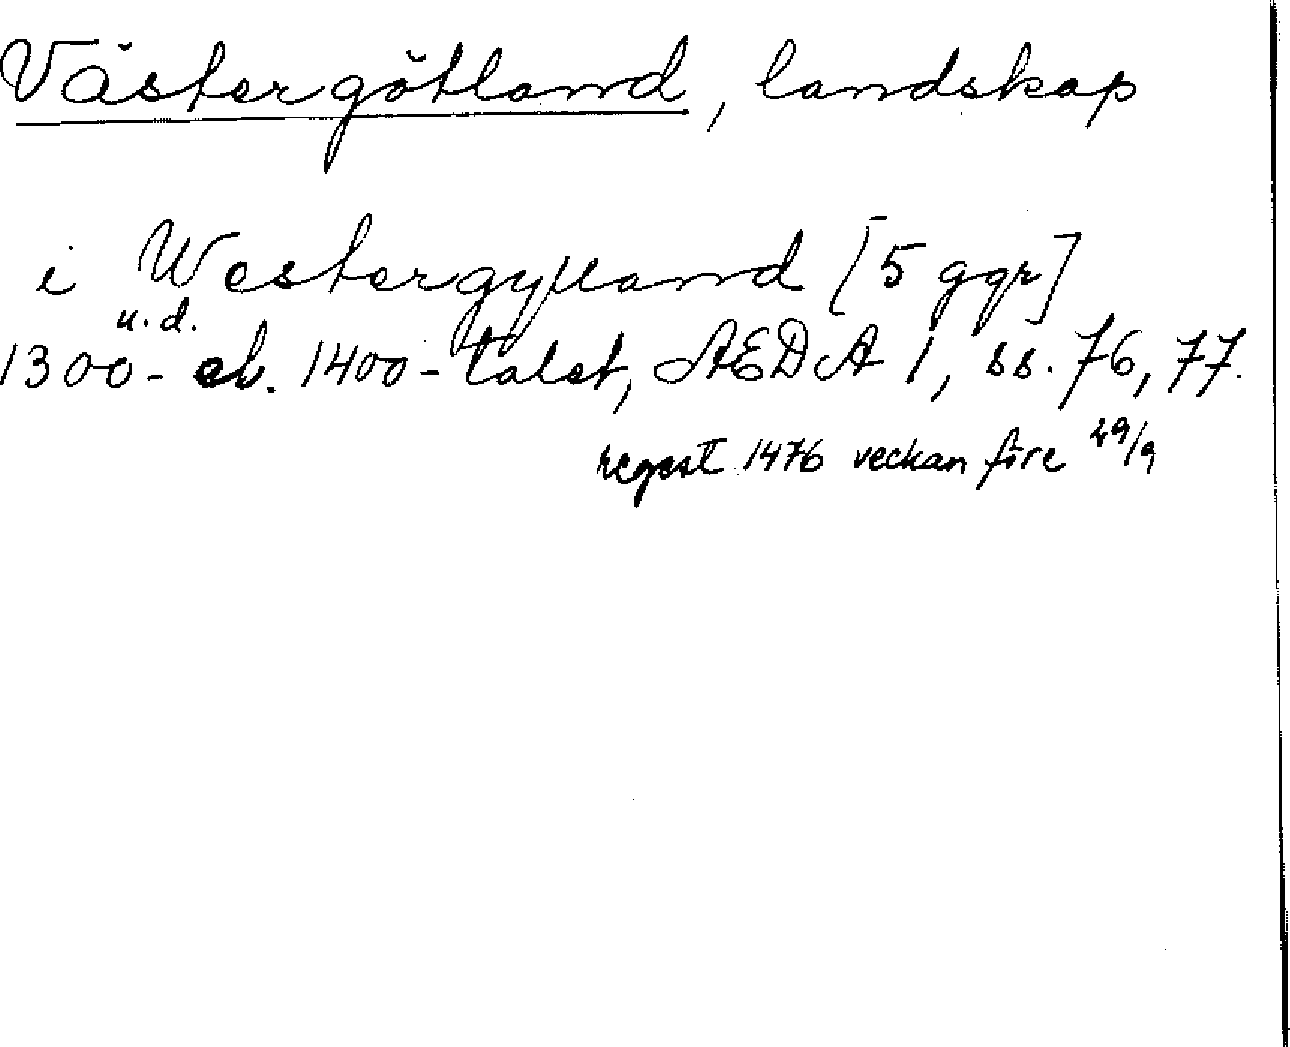 Västergötland, landskap
i Westergylland [5 ggr]
u.d.
1300- el. 1400-talet, AEDA 1, ss. 76, 77.
regest 1476 veckan före 29/9